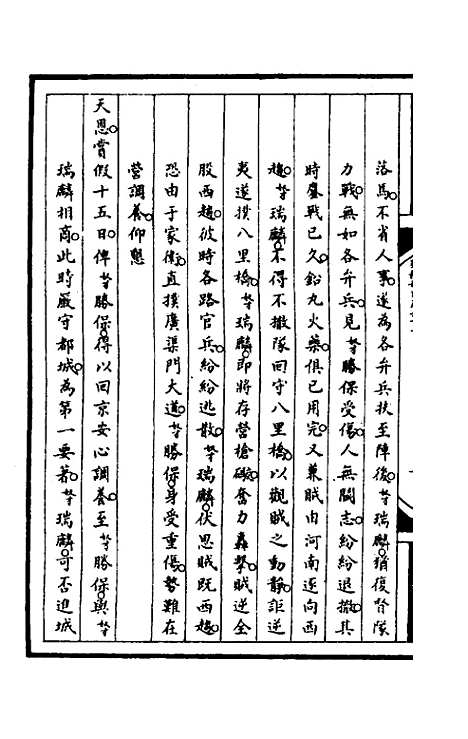 落馬不省人事遂為各弁兵扶至陣後奴才瑞麟猶復督隊
力戰無如各弁兵見奴才勝保受傷人無鬪志紛紛退撤其
時鏖戰已久鉛丸火藥俱已用完又兼賊由河南逕向西
趨奴才瑞麟不得不撤隊回守八里橋以觀賊之動靜詎逆
夷遂撲八里橋奴才瑞麟即將存營槍礮奮力轟擊賊逆全
股西趨彼時各路官兵紛紛逃散奴才瑞麟伏思賊既西趨
恐由于家衛直撲廣渠門大道奴才勝保身受重傷勢難在
營調養仰懇
天恩賞假十五日俾奴才勝保得以回京安心調養至奴才勝保與奴才
瑞麟相商此時嚴守都城為第一要著奴才瑞麟可否進城